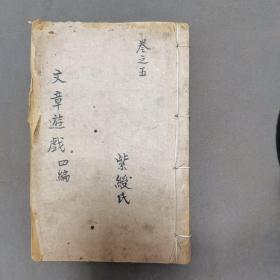 卷之五
文章遊戲四編
紫綬氏